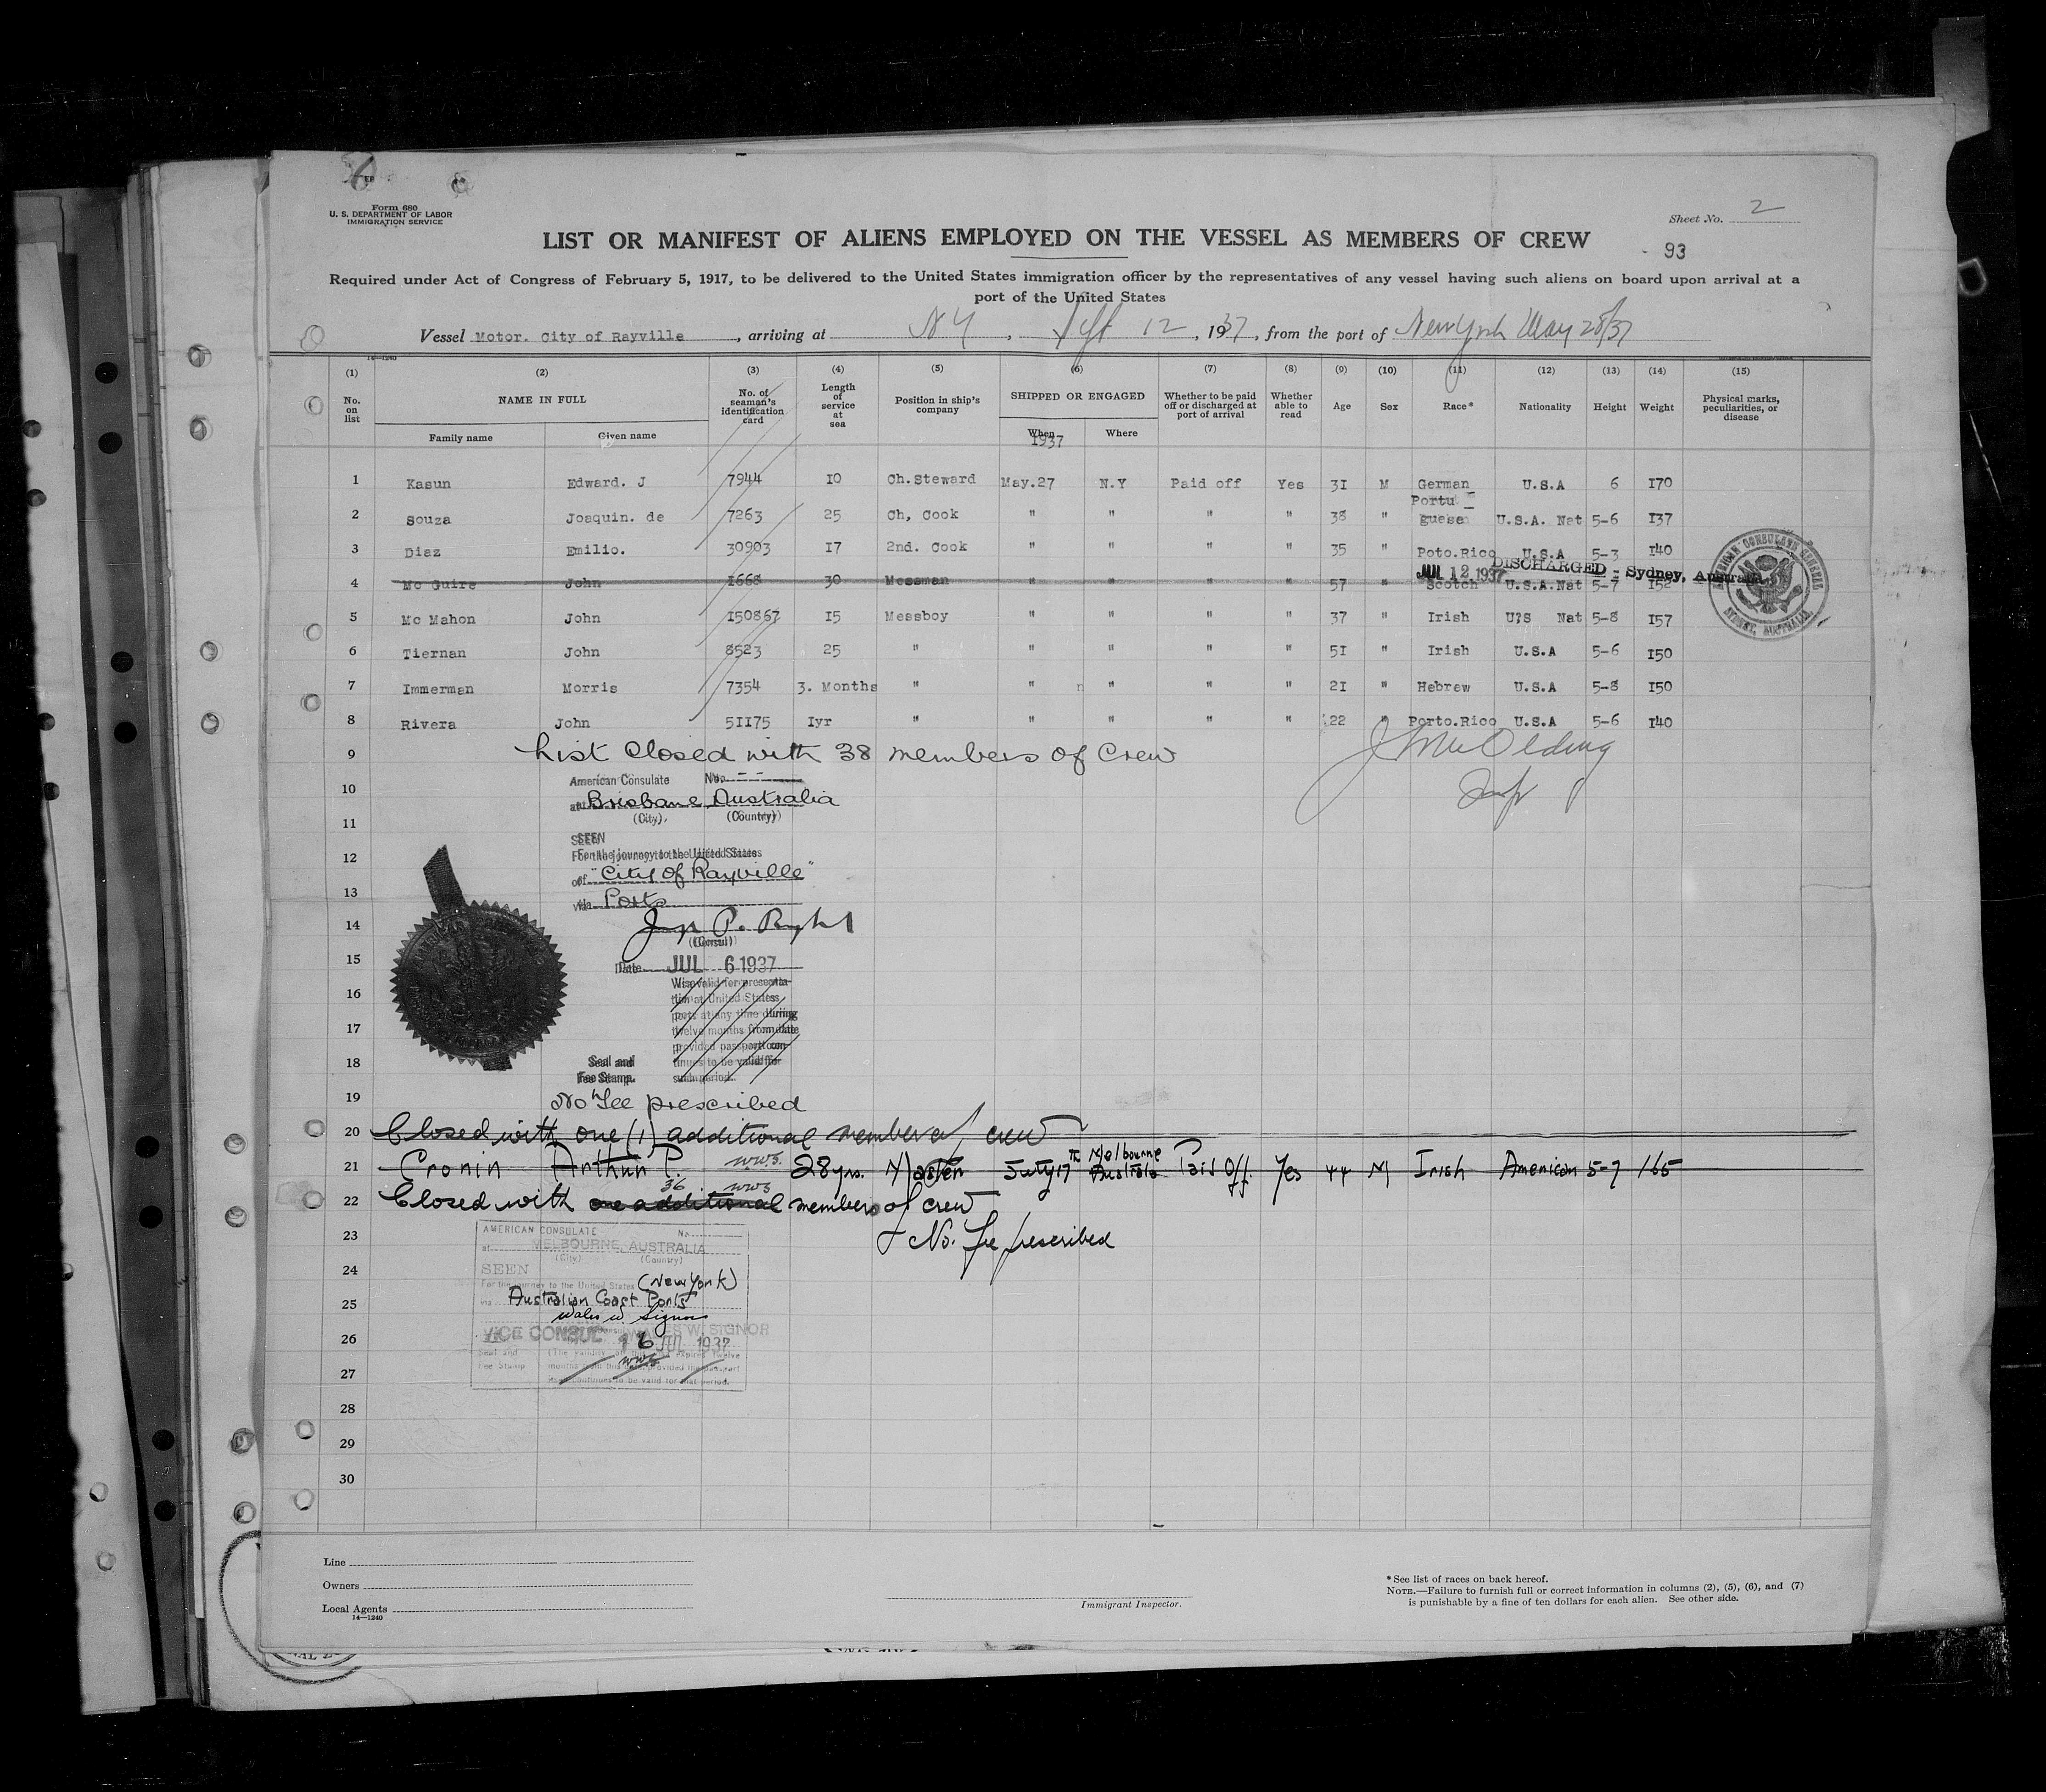 Form 680
U. S. DEPARTMENT OF LABOR
IMMIGRATION SERVICE
Sheet No. 2
LIST OR MANIFEST OF ALIENS EMPLOYED ON THE VESSEL AS MEMBERS OF CREW
93
Required under Act of Congress of February 5, 1917, to be delivered to the United States immigration officer by the representatives of any vessel having such aliens on board upon arrival at a
port of the United States
Vessel Motor. City of Rayville, arriving at N Y, Sept 12, 1937, from the port of New York May 28/37
14—1240
(1) (2) (3) (4) (5) (6) (7) (8) (9) (10) (11) (12) (13) (14) (15)
No. on list NAME IN FULL Family name Given name No. of seaman's identification card Length of service at sea Position in ship's company SHIPPED OR ENGAGED When 1937 Where Whether to be paid off or discharged at port of arrival Whether able to read Age Sex Race* Nationality Height Weight Physical marks, peculiarities, or disease
1 Kasun Edward. J 7944 10 Ch.Steward May.27 N.Y Paid off Yes 31 M German U.S.A 6 170
2 Souza Joaquin. de 7263 25 Ch, Cook " " " " 38 " Portu-guese U.S.A. Nat 5-6 137
3 Diaz Emilio. 30903 17 2nd. Cook " " " " 35 " Poto.Rico U.S.A 5-3 140
JUL 12, 1937 DISCHARGED - Sydney, Australia
4 Mc Guire John 1668 30 Messman " " " " 57 " Scotch U.S.A.Nat 5-7 152
5 Mc Mahon John 150867 15 Messboy " " " " 37 " Irish U?S Nat 5-8 157
6 Tiernan John 8523 25 " " " " " 51 " Irish U.S.A 5-6 150
7 Immerman Morris 7354 3. Months " " n " " " 21 " Hebrew U.S.A 5-8 150
8 Rivera John 51175 1yr " " " " " 22 " Porto.Rico U.S.A 5-6 140
AMERICAN CONSULATE GENERAL
SYDNEY, AUSTRALIA
9 List Closed with 38 members of Crew
American Consulate No. - -
10 at Brisbane Australia
(City). (Country)
11
SEEN
12 For the journey to the United States
of "City of Rayville"
13 via Ports
14
(Consul)
15 Date JUL 6 1937
Visa valid for presenta-
16 tion at United States
ports at any time during
17 twelve months from date
provided passport con-
18 Seal and tinues to be valid for
Fee Stamp. such period.
19 No Fee prescribed
20 Closed with one (1) additional member of crew
21 Cronin Arthur P. W.W.S. 28 yrs. Master July 17th Melbourne Australia Paid Off. Yes 44 M Irish American 5-7 165
36 WWS
22 Closed with one additional members of crew
23 No. fee prescribed
AMERICAN CONSULATE No.
at MELBOURNE, AUSTRALIA
(City) (Country)
24 SEEN
For the journey to the United States (New York)
25 via Australian Coast Ports
26 VICE CONSUL W. SIGNOR
16 JUL 1937
Seal and Fee Stamp (The validity of this expires twelve
27 months from this provided the passport
continues to be valid for that period.
WWS
28
29
30
Line
Owners
Local Agents
14—1240
Immigrant Inspector.
* See list of races on back hereof.
NOTE.—Failure to furnish full or correct information in columns (2), (5), (6), and (7)
is punishable by a fine of ten dollars for each alien. See other side.